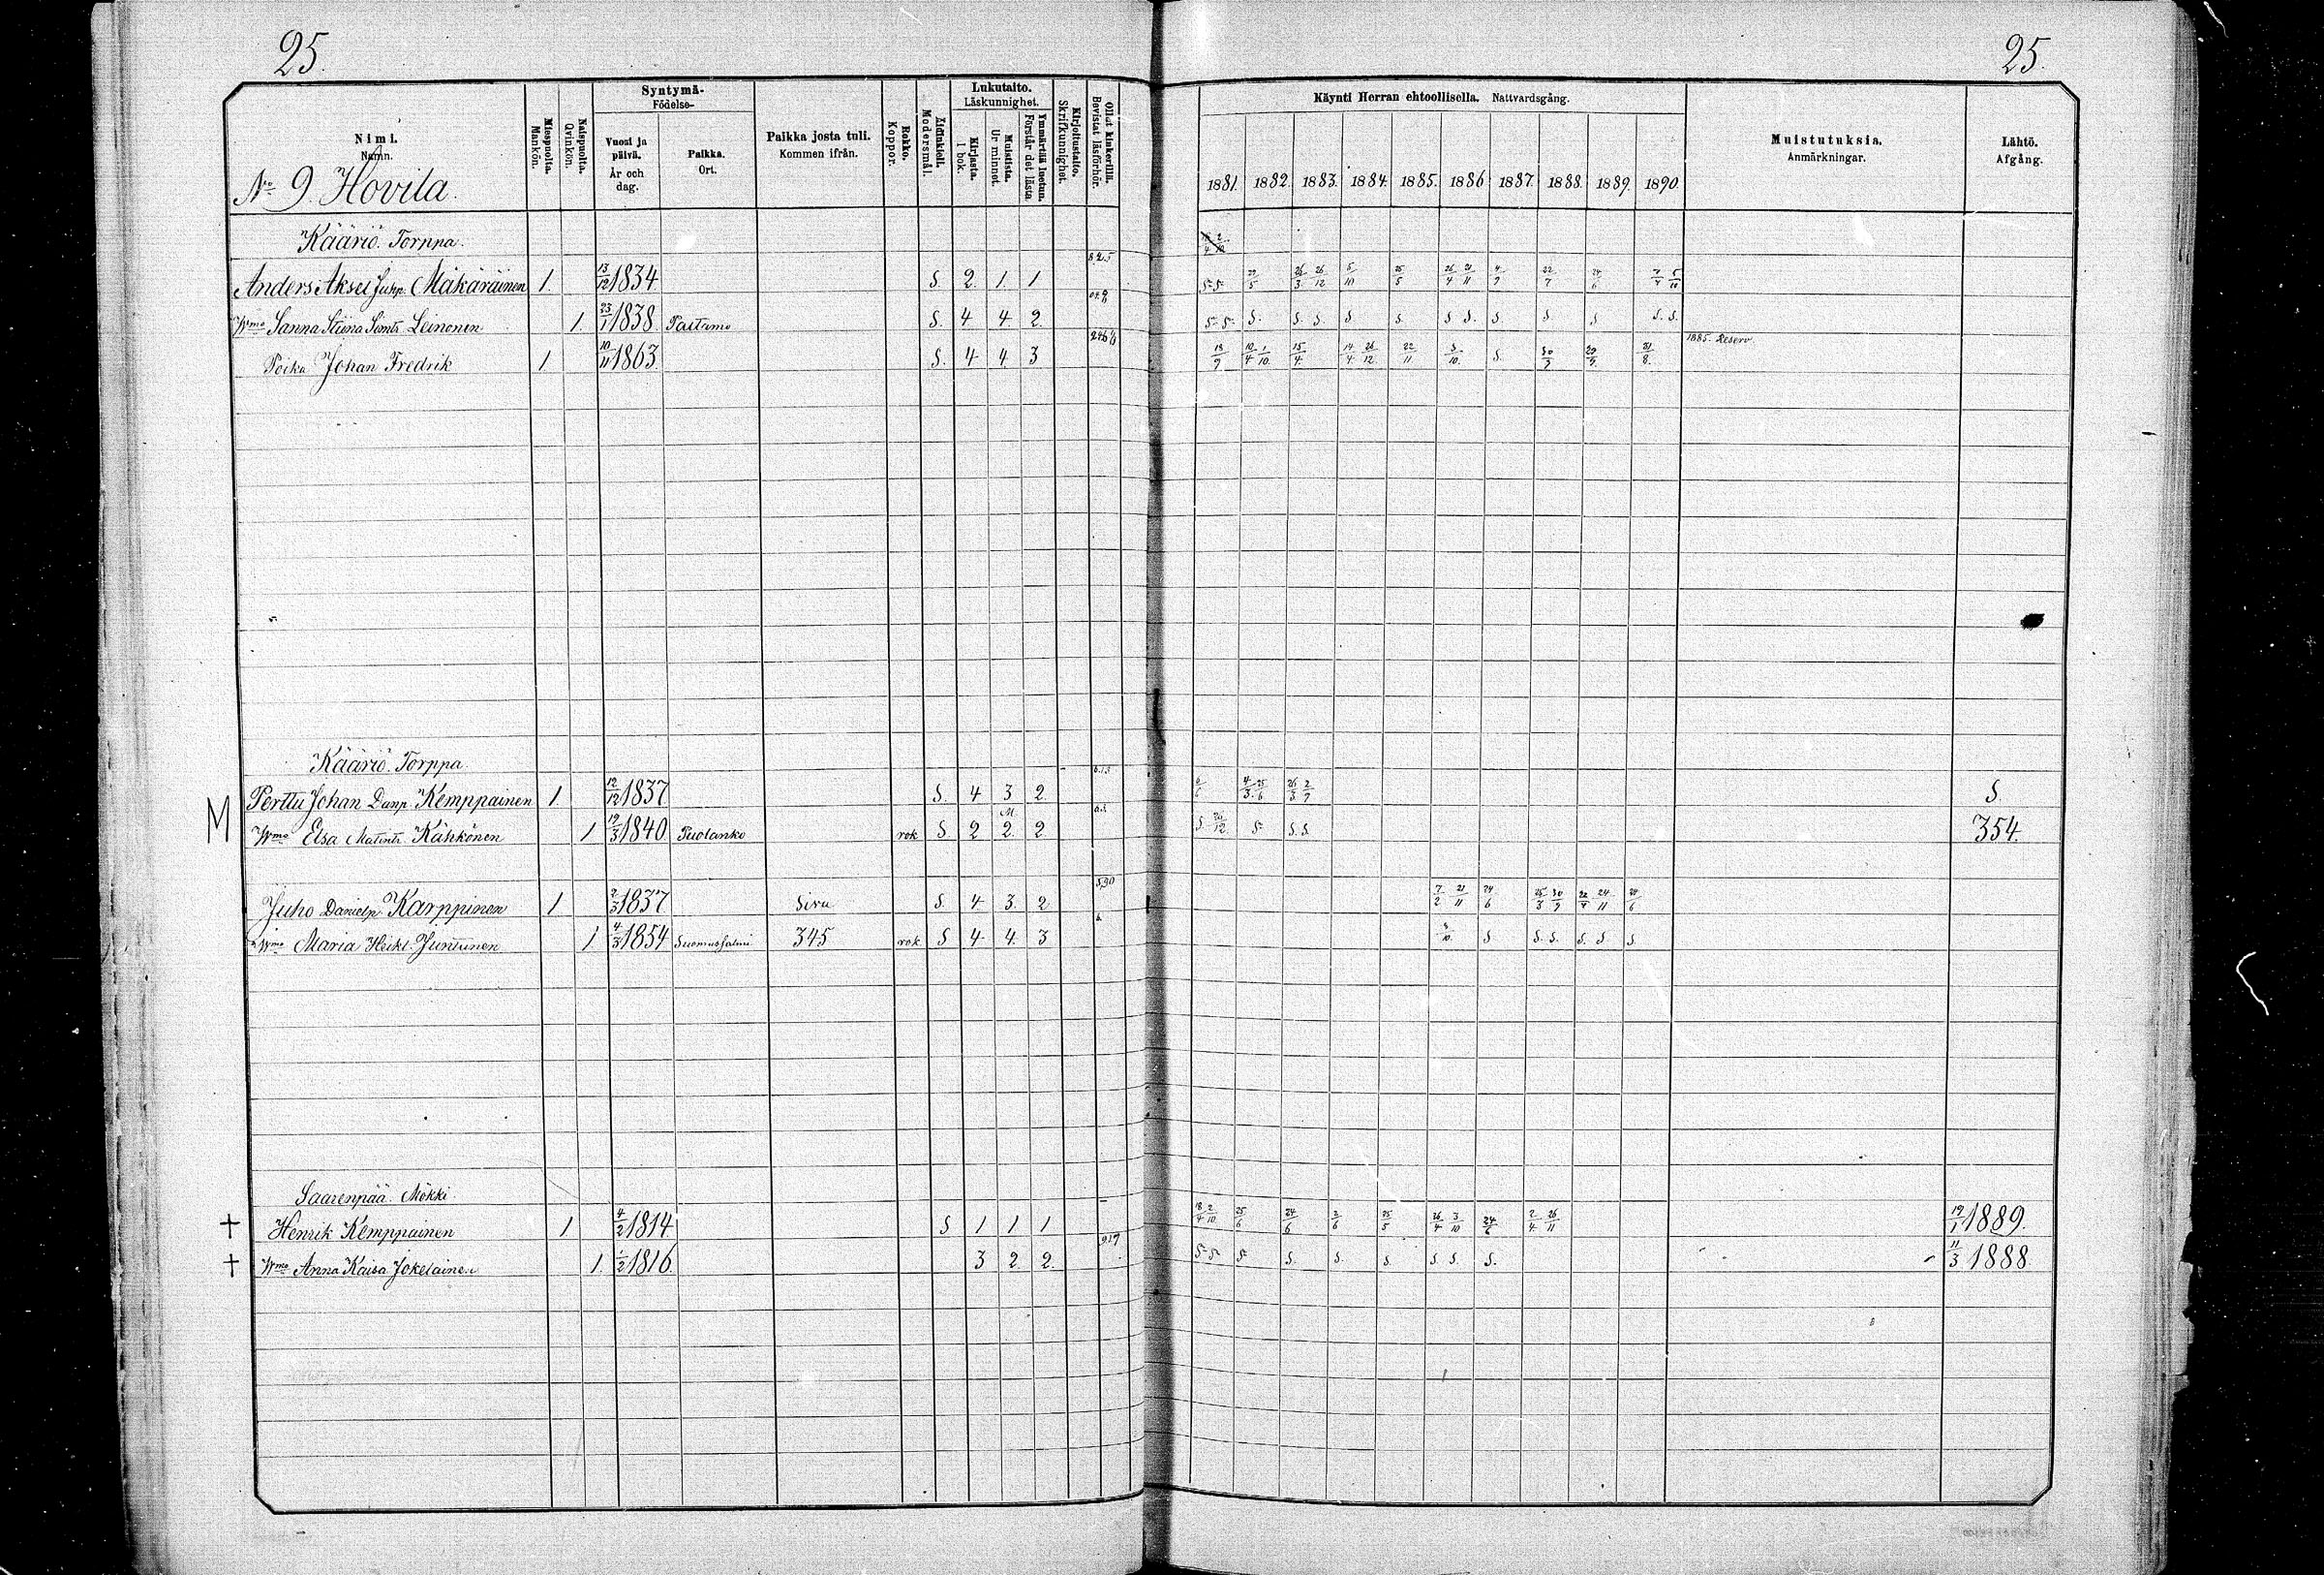 25.
25.
Nimi.
Namn.
Miespuolta.
Mankön.
Naispuolta.
Qvinkön.
Syntymä-
Födelse-
Vuosi ja päivä.
År och dag.
Paikka.
Ort.
Paikka josta tuli.
Kommen ifrån.
Rokko.
Koppor.
Äidinkieli.
Modersmål.
Lukutaito.
Läskunnighet.
Kirjasta.
I bok.
Muistista.
Ur minnet.
Ymmärtää luetun.
Förstår det lästa
Kirjoitustaito.
Skrifkunnighet.
Ollut kinkerillä.
Bevistat läsförhör.
Käynti Herran ehtoollisella. Nattvardsgång.
1881. 1882. 1883. 1884. 1885. 1886 1887. 1888. 1889. 1890.
Muistutuksia.
Anmärkningar.
Lähtö.
Afgång.
No 9. Hovila.
Kääriö. Torppa.
Anders Aksel Juhp. Mäkäräinen 1. 13/12 1834 S. 2. 1. 1 5/10 25/5 26/4 21/11 22/7
Wmo Sanna Stiina Simts. Leinonen 1. 23/1 1838. Paltamo S. 4 4. 2. S. S. S. S S. S S. S. S S S. S.
Poika Johan Fredrik 1. 10/11 1863. S. 4 4. 3 18/9 10/4 1/10. 15/4. 14/4. 26/12. 22/11 3/10. S. 30/9 31/8. 1885. Reserv.
Kääriö. Torppa.
M Perttu Johan Danp. Kemppainen 1. 12/12 1837. S. 4 3 2. 4/3. 25/6. S.
Wmo Elsa Matints. Kähkönen 1 19/3 1840 Puolanko rok. S. 2 2. 2. S. S. S. 354.
Juho Danielp. Karppinen 1 2/3 1837 Sivu S. 4 3. 2 7/2 21/11 24/6 25/3 30/9 24/11
Wmo Maria Heikt. Juntunen 1 4/3 1854 Suomussalmi 345 rok. S 4 4. 3 3/10. S S. S. S. S S.
Saarenpää. Mökki
† Henrik Kemppainen 1 4/2 1814. S 1 1 1 18/4 2/10. 25/6 24/6 25/5 26/4 3/10 24/6 2/4. 26/11 19/1 1889.
† Wmo Anna Kaisa Jokelainen 1. 1/2 1816. 3 2. 2. S. S. S. S. S. S. S. 11/3 1888.